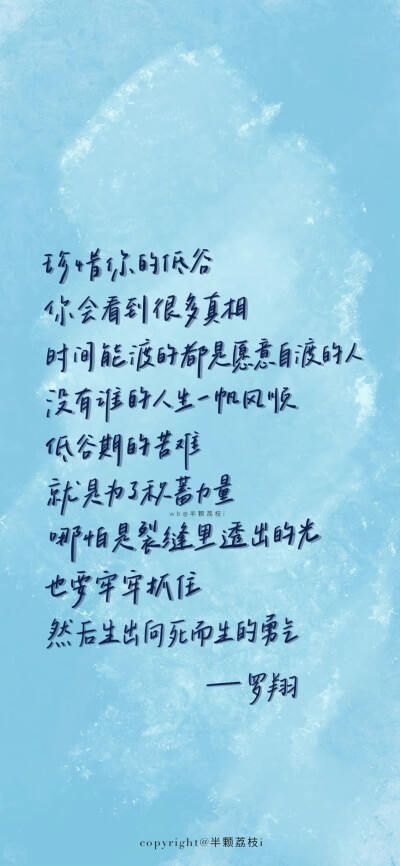 珍惜你的低谷
你会看到很多真相
时间能渡的都是愿意自渡的人
没有谁的人生一帆风顺
低谷期的苦难
就是为了积蓄力量
wb@半颗荔枝i
哪怕是裂缝里透出的光
也要牢牢抓住
然后生出向死而生的勇气
——罗翔
copyright@半颗荔枝i